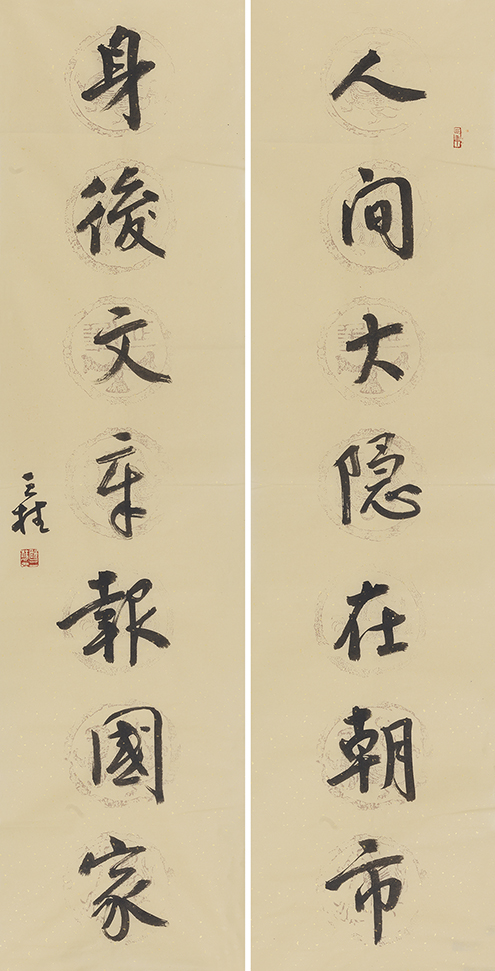 人间大隐在朝市
身後文章報國家
三桂